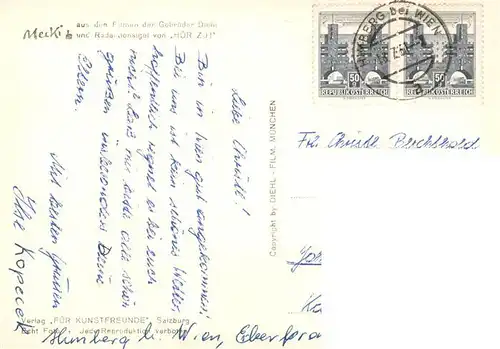 Mecki
aus den Filmen der Gebrüder Diehl
und Redaktionsigel von „HÖR ZU!"
HIMBERG bei WIEN
50 g
REPUBLIK ÖSTERREICH
50 g
REPUBLIK ÖSTERREICH
Liebe Christl!
Bin in hier gut angekommen;
Bei uns ist kein schönes Wetter,
hoffentlich regnet es bei euch
nicht! Laß mir bitte alle schön
grüßen insbesondere Deine
Eltern.
Mit besten Grüßen
Ilse Kopecek
Himberg b. Wien,
Copyright by DIEHL - FILM, MÜNCHEN
Frl. Christl
Verlag „FÜR KUNSTFREUNDE", Salzburg
Echt Foto Jede Reproduktion verboten